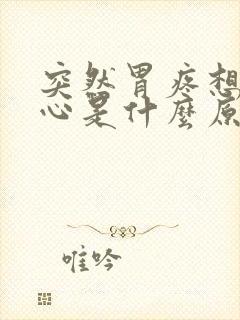 突然胃疼想
心是什麼原
唯吟